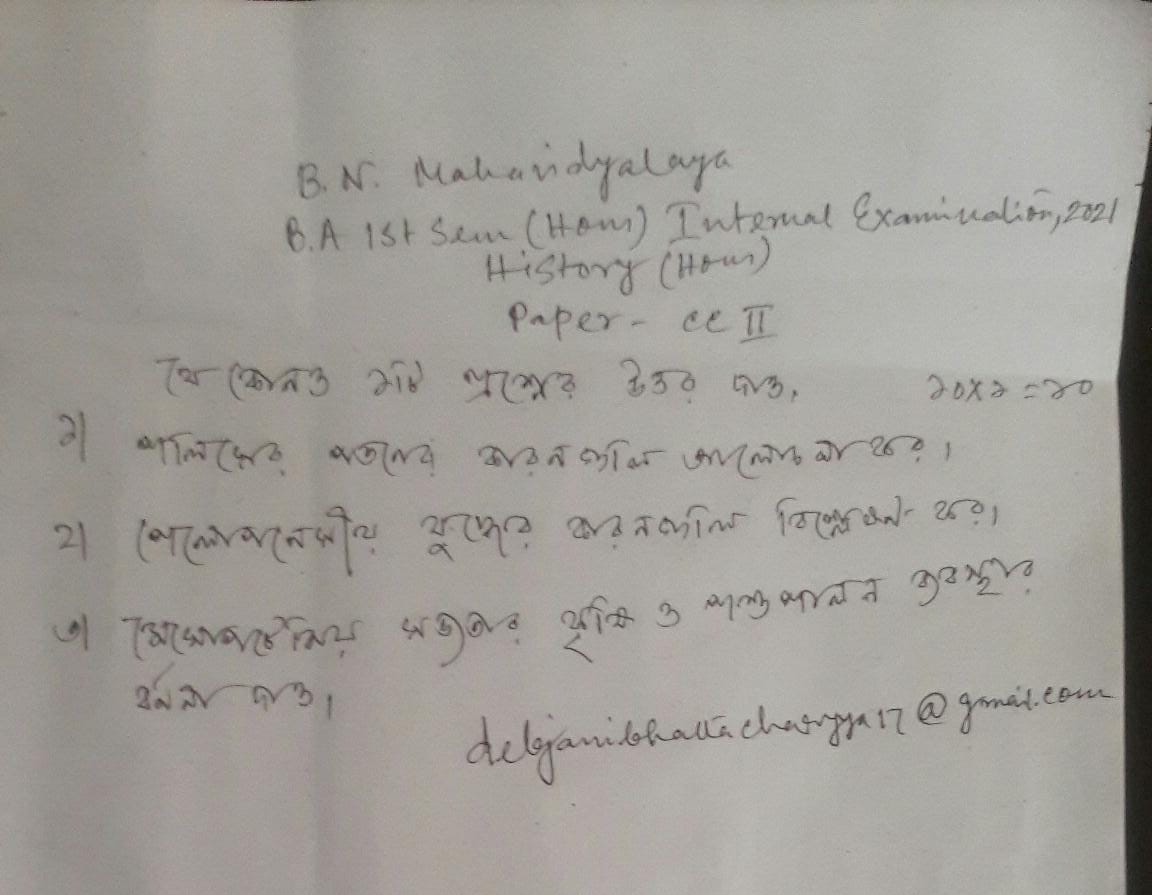 B.N. Mahavidyalaya
B.A 1st Sem (Hons) Internal Examination, 2021
History (Hons)
Paper - CC II
যে কোনও ১টি প্রশ্নের উত্তর দাও, ১০x১=১০
১| পলিসের পতনের কারনগুলি আলোচনা কর।
২| পেলোপনেসীয় যুদ্ধের কারনগুলি বিশ্লেষণ কর।
৩| মেসোপটেমিয় সভ্যতার কৃষি ও পশুপালন ব্যবস্থার
বর্ননা দাও।
debjanibhattacharyya17@gmail.com